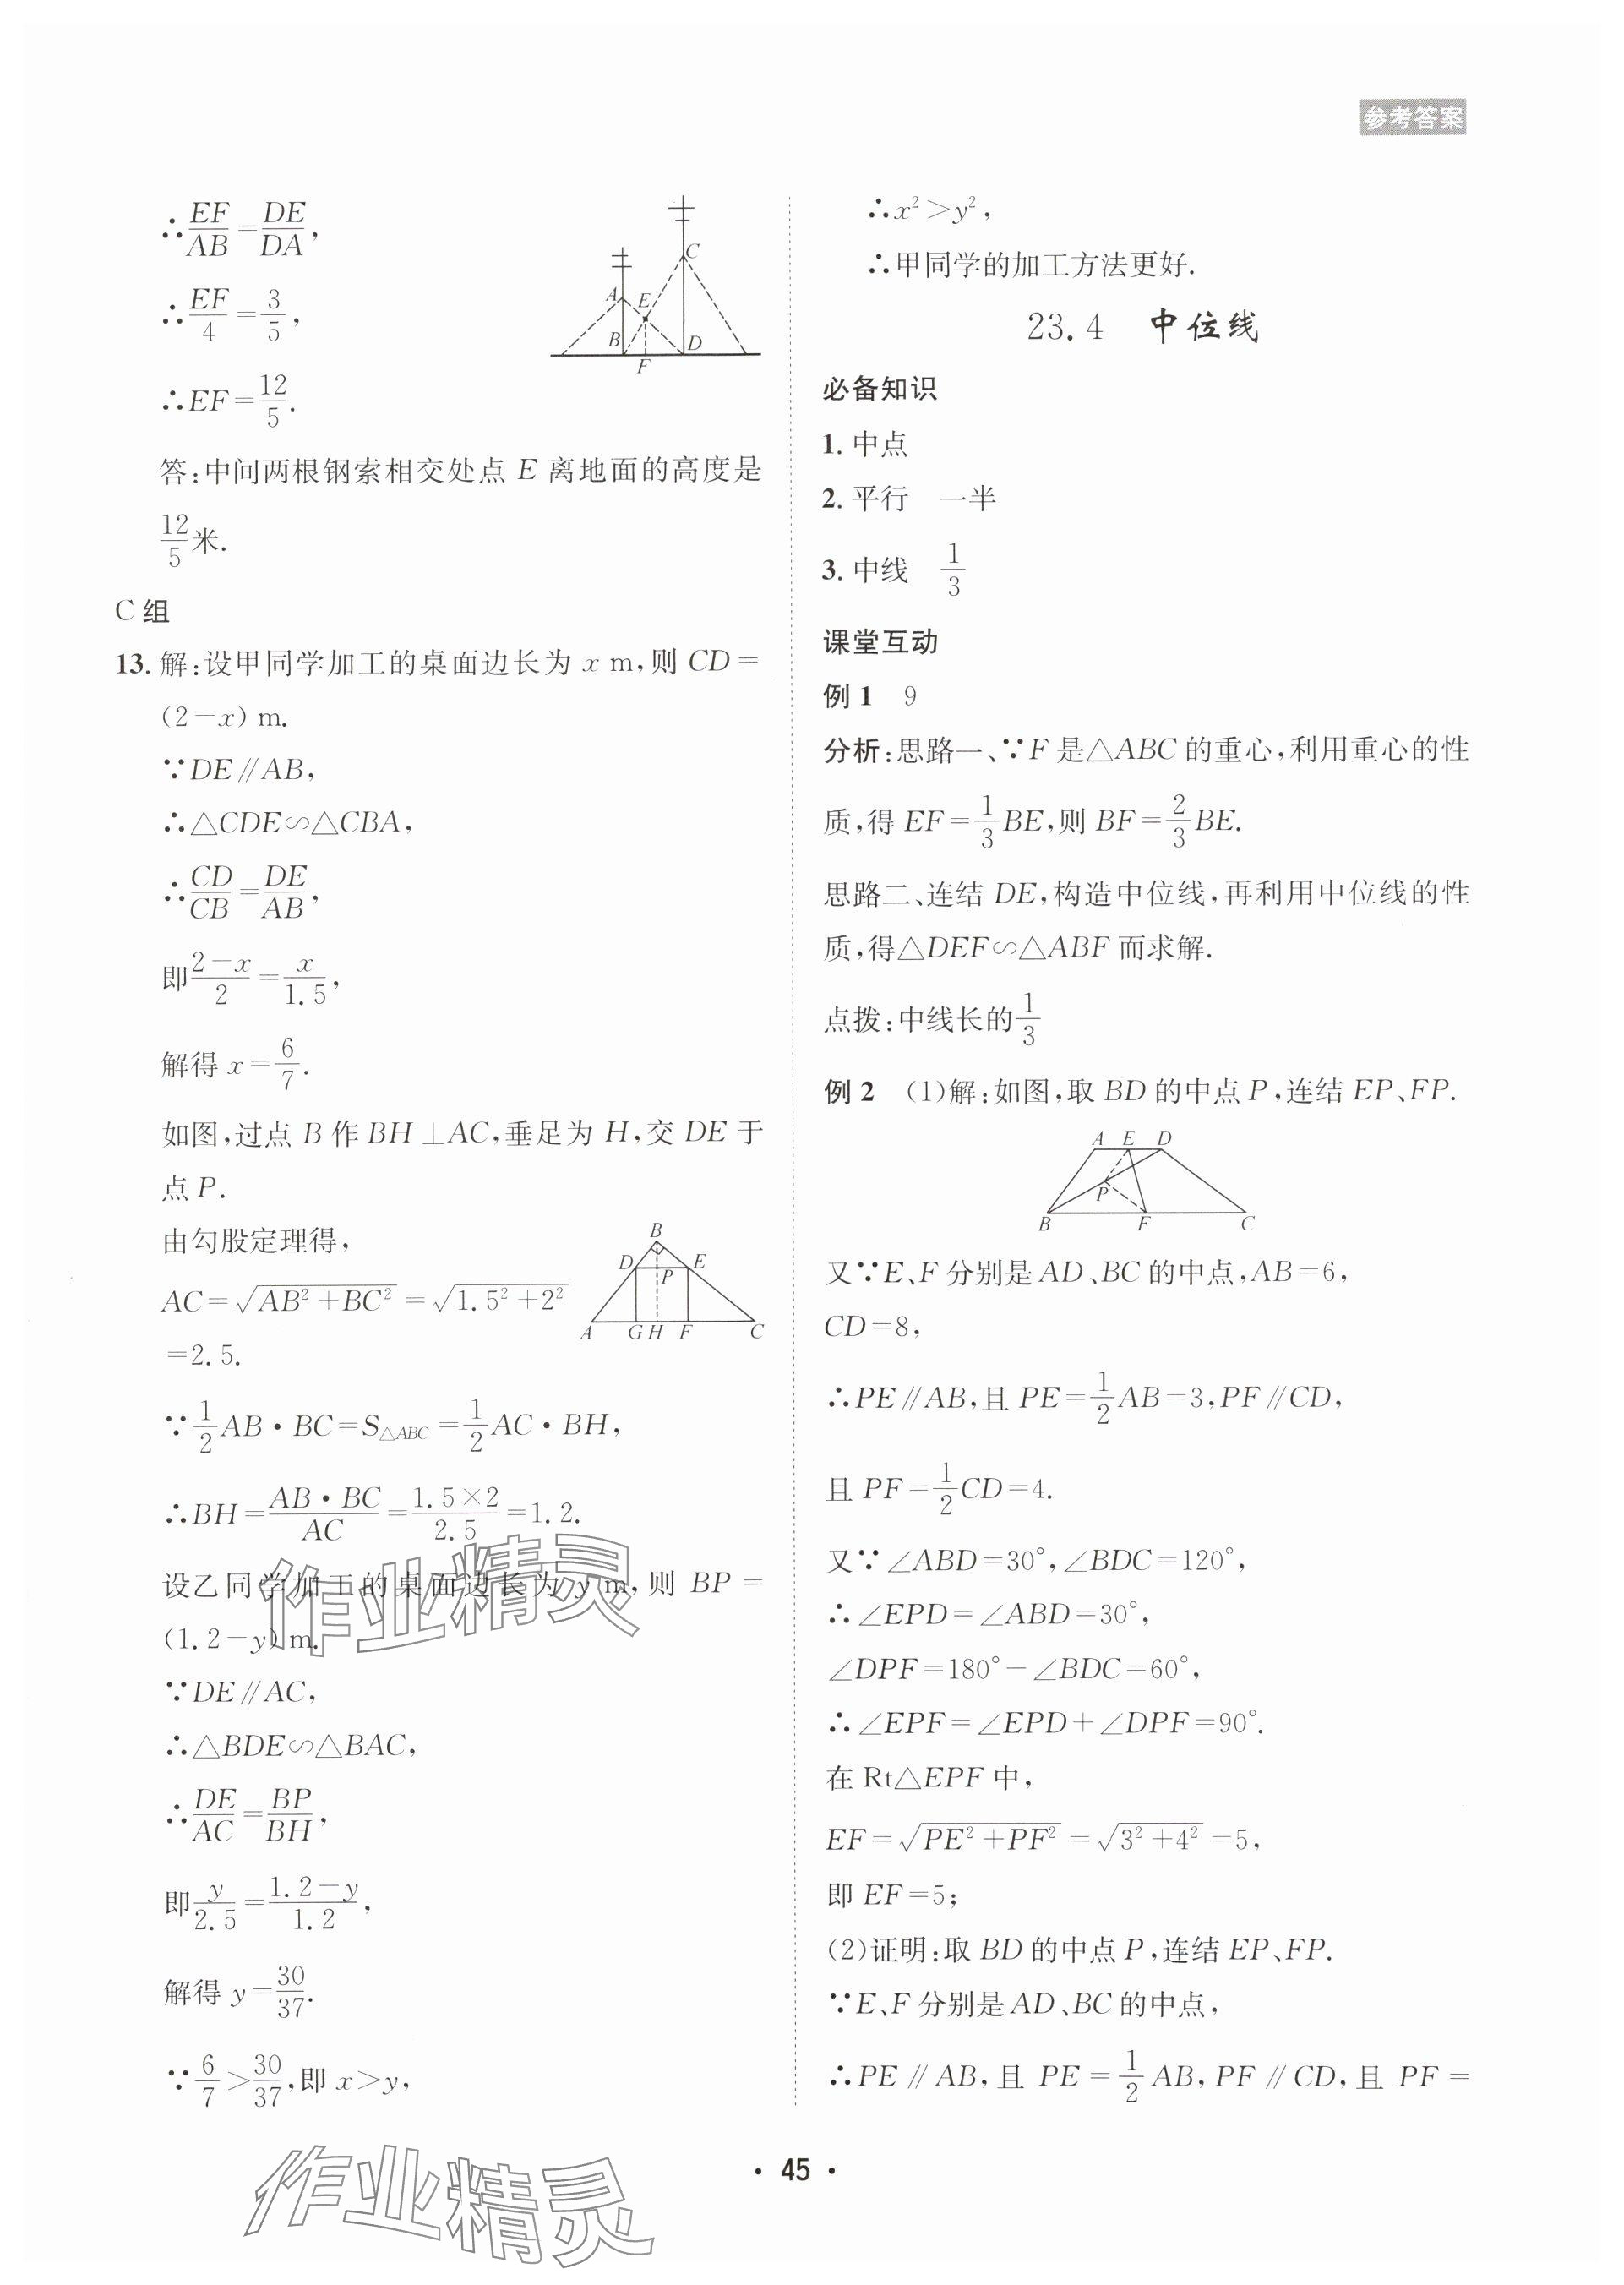 参考答案
∴EF/AB=DE/DA,
∴EF/4=3/5,
∴EF=12/5.
答:中间两根钢索相交处点 E 离地面的高度是
12/5米.
A
B
C
D
E
F
C 组
13. 解:设甲同学加工的桌面边长为 x m,则 CD=
(2-x) m.
∵DE∥AB,
∴△CDE∽△CBA,
∴CD/CB=DE/AB,
即(2-x)/2=x/1.5,
解得 x=6/7.
如图,过点 B 作 BH⊥AC,垂足为 H,交 DE 于
点 P.
由勾股定理得,
AC=√(AB²+BC²)=√(1.5²+2²)
=2.5.
B
D
E
P
A
G
H
F
C
∵1/2AB·BC=S△ABC=1/2AC·BH,
∴BH=AB·BC/AC=1.5×2/2.5=1.2.
设乙同学加工的桌面边长为 y m,则 BP=
(1.2-y) m.
∵DE∥AC,
∴△BDE∽△BAC,
∴DE/AC=BP/BH,
即y/2.5=(1.2-y)/1.2,
解得 y=30/37.
∵6/7>30/37,即 x>y,
∴x²>y²,
∴甲同学的加工方法更好.
23.4 中位线
必备知识
1. 中点
2. 平行 一半
3. 中线 1/3
课堂互动
例 1 9
分析:思路一、∵F 是△ABC 的重心,利用重心的性
质,得 EF=1/3BE,则 BF=2/3BE.
思路二、连结 DE,构造中位线,再利用中位线的性
质,得△DEF∽△ABF 而求解.
点拨:中线长的1/3
例 2 (1)解:如图,取 BD 的中点 P,连结 EP、FP.
A
E
D
P
B
F
C
又∵E、F 分别是 AD、BC 的中点,AB=6,
CD=8,
∴PE∥AB,且 PE=1/2AB=3,PF∥CD,
且 PF=1/2CD=4.
又∵∠ABD=30°,∠BDC=120°,
∴∠EPD=∠ABD=30°,
∠DPF=180°-∠BDC=60°,
∴∠EPF=∠EPD+∠DPF=90°.
在 Rt△EPF 中,
EF=√(PE²+PF²)=√(3²+4²)=5,
即 EF=5;
(2)证明:取 BD 的中点 P,连结 EP、FP.
∵E、F 分别是 AD、BC 的中点,
∴PE∥AB,且 PE=1/2AB,PF∥CD,且 PF=
·45·
作业精灵
作业精灵